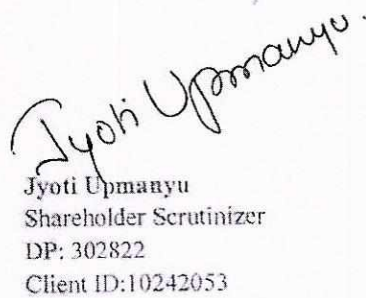 Jyoti Upmanyu.
Jyoti Upmanyu
Shareholder Scrutinizer
DP: 302822
Client ID:10242053